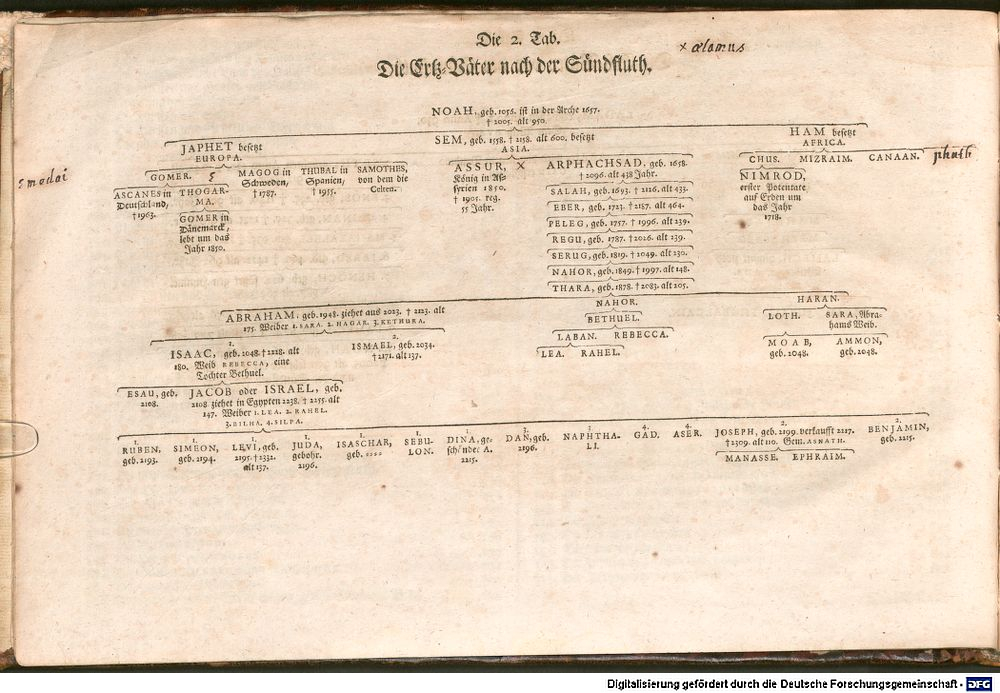 Die 2. Tab.
× ælamus
Die Ertz-Väter nach der Sündfluth.
NOAH, geb. 1056. ist in der Arche 1657.
† 2005. alt 950.
JAPHET besetzt
EUROPA.
SEM, geb. 1558. † 2158. alt 600. besetzt
ASIA.
HAM besetzt
AFRICA.
ς madai
GOMER. ς
MAGOG in
Schweden,
† 1787.
THUBAL in
Spanien,
† 1955.
SAMOTHES,
von dem die
Celten.
ASCANES in
Deutschland,
† 1963.
THOGAR-
MA.
GOMER in
Dänemarck,
lebt um das
Jahr 1850.
ASSUR, ×
König in As-
syrien 1850.
† 1905. reg.
55 Jahr.
ARPHACHSAD, geb. 1658.
† 2096. alt 438 Jahr.
SALAH, geb. 1693. † 2126. alt 433.
EBER, geb. 1723. † 2187. alt 464.
PELEG, geb. 1757. † 1996. alt 239.
REGU, geb. 1787. † 2026. alt 239.
SERUG, geb. 1819. † 2049. alt 230.
NAHOR, geb. 1849. † 1997. alt 148.
THARA, geb. 1878. † 2083. alt 205.
CHUS. MIZRAIM. CANAAN.
NIMROD,
erster Potentate
auf Erden um
das Jahr
1718.
ABRAHAM, geb. 1948. ziehet aus 2023. † 2123. alt
175. Weiber 1. SARA. 2. HAGAR. 3. KETHURA.
NAHOR.
BETHUEL.
LABAN. REBECCA.
LEA. RAHEL.
HARAN.
LOTH. SARA, Abra-
hams Weib.
MOAB,
geb. 2048.
AMMON,
geb. 2048.
1.
ISAAC, geb. 2048. † 2228. alt
180. Weib REBECCA, eine
Tochter Bethuel.
2.
ISMAEL, geb. 2034.
† 2171. alt 137.
ESAU, geb.
2108.
JACOB oder ISRAEL, geb.
2108. ziehet in Egypten 2238. † 2255. alt
147. Weiber 1. LEA. 2. RAHEL.
3. BILHA. 4. SILPA.
1.
RUBEN,
geb. 2193.
1.
SIMEON,
geb. 2194.
1.
LEVI, geb.
2195. † 2332.
alt 137.
1.
JUDA,
gebohr.
2196.
1.
ISASCHAR,
geb. ....
1.
SEBU-
LON.
1.
DINA, ge-
schändet A.
2215.
3.
DAN, geb.
2196.
3.
NAPHTHA-
LI.
4.
GAD.
4.
ASER.
2.
JOSEPH, geb. 2199. verkaufft 2217.
† 2309. alt 110. Gem. ASNATH.
MANASSE. EPHRAIM.
2.
BENJAMIN,
geb. 2215.
Digitalisierung gefördert durch die Deutsche Forschungsgemeinschaft - DFG